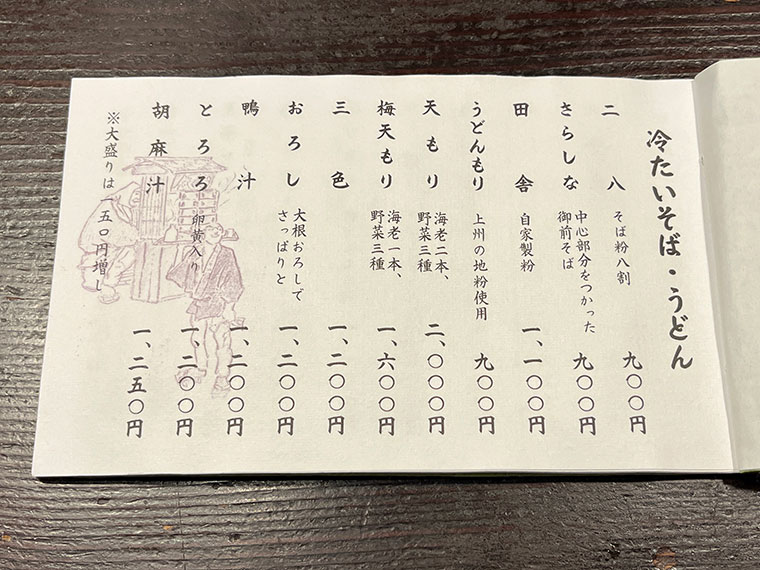 冷たいそば・うどん
二八 そば粉八割 九〇〇円
さらしな 中心部分をつかった
御前そば 九〇〇円
田舎 自家製粉 一、一〇〇円
うどんもり 上州の地粉使用 九〇〇円
天もり 海老二本、
野菜三種 二、〇〇〇円
梅天もり 海老一本、
野菜三種 一、六〇〇円
三色 一、二〇〇円
おろし 大根おろしで
さっぱりと 一、二〇〇円
鴨汁 一、二〇〇円
とろろ 卵黄入り 一、二〇〇円
胡麻汁 一、二五〇円
※大盛りは一五〇円増し